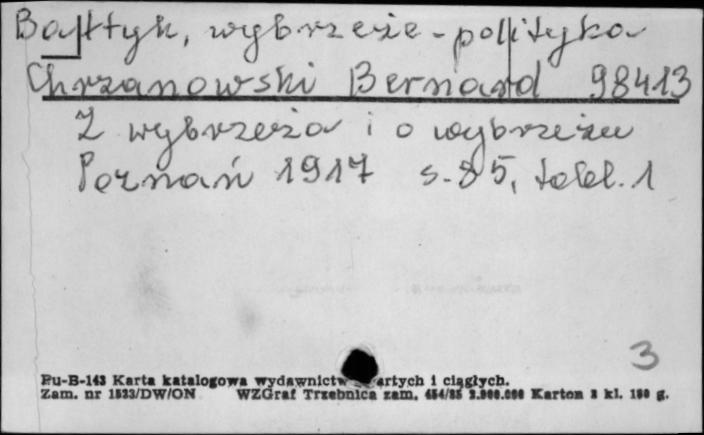 Bałtyk, wybrzeże - polityka
Chrzanowski Bernard 98413
Z wybrzeża i o wybrzeżu
Poznań 1917 s. 85, tabl. 1
3
Pu-B-143 Karta katalogowa wydawnictw zwartych i ciągłych.
Zam. nr 1523/DW/ON WZGraf Trzebnica zam. 454/85 2.000.000 Karton 2 kl. 180 g.